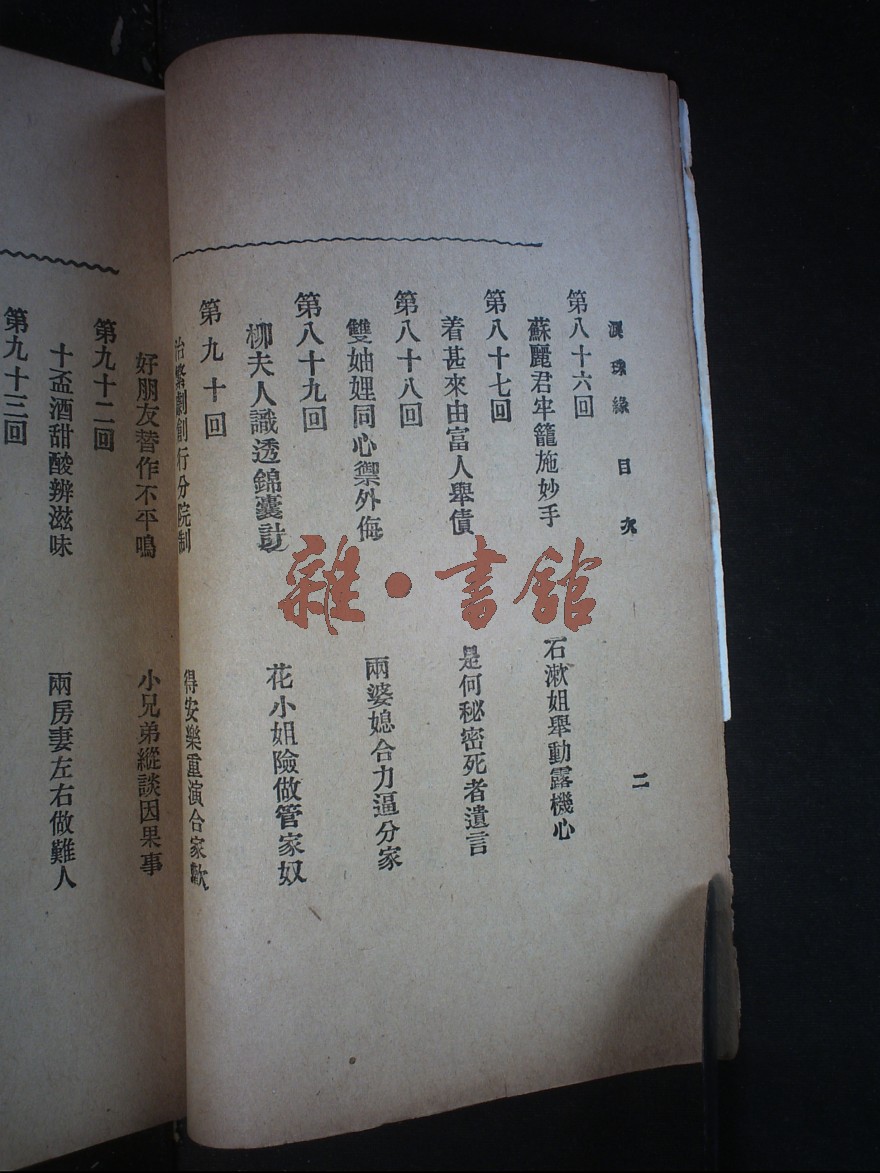 淚珠緣 目次 二
第八十六回
蘇麗君牢籠施妙手 石漱姐舉動露機心
第八十七回
着甚來由富人舉債 是何秘密死者遺言
第八十八回
雙妯娌同心禦外侮 兩婆媳合力逼分家
第八十九回
柳夫人識透錦囊計 花小姐險做管家奴
第九十回
治繁劇創行分院制 得安樂重演合家歡
好朋友替作不平鳴 小兄弟縱談因果事
第九十二回
十盃酒甜酸辨滋味 兩房妻左右做難人
第九十三回
雜·書館